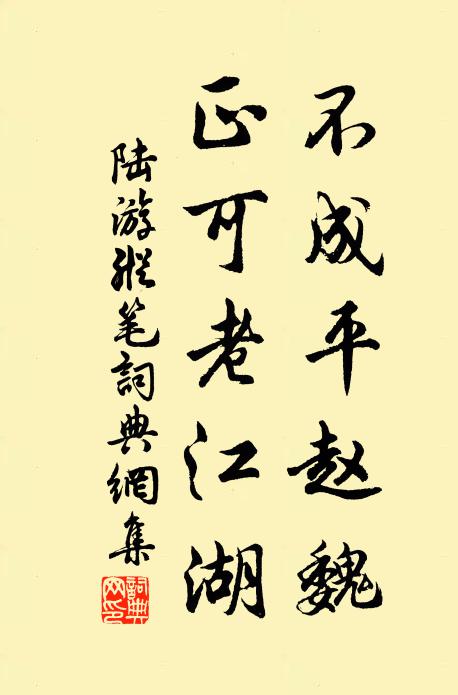 不成平赵魏
正可老江湖
陆游縱笔詞典網集
詞典网印